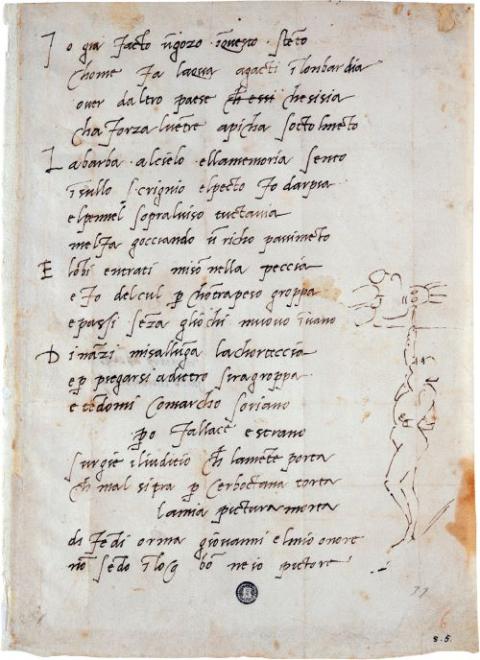 I o gia facto ũ gozo ĩ questo stẽto
chome fa laqua agacti ĩ lonbardia
over daltro paese ch̃ essi chesisia
cha forza luẽtre apicha socto lmẽto
L a barba alcielo ellamemoria sento
ĩ sullo scrignio elpecto fo darpia
elpennel sopraluiso tuctavia
melfa gocciando ũ richo pavimẽto
E lõbi entrati miso nella peccia
e fo delcul p̱ chõtrapeso groppa
e passi sẽza gliochi muovo ĩ vano
D inãzi misallũga lachorteccia
e p̱ piegarsi adietro siragroppa
e tẽdomi comarcho soriano
p̱o fallace e strano
surgie iliuditio ch̃ lamẽte porta
ch̃ mal si tra p̱ cerboctana torta
lamia pictura morta
di fẽdi orma giovanni elmio onore
nõ sẽdo ĩ loco bõ ne io pictore
8.5.